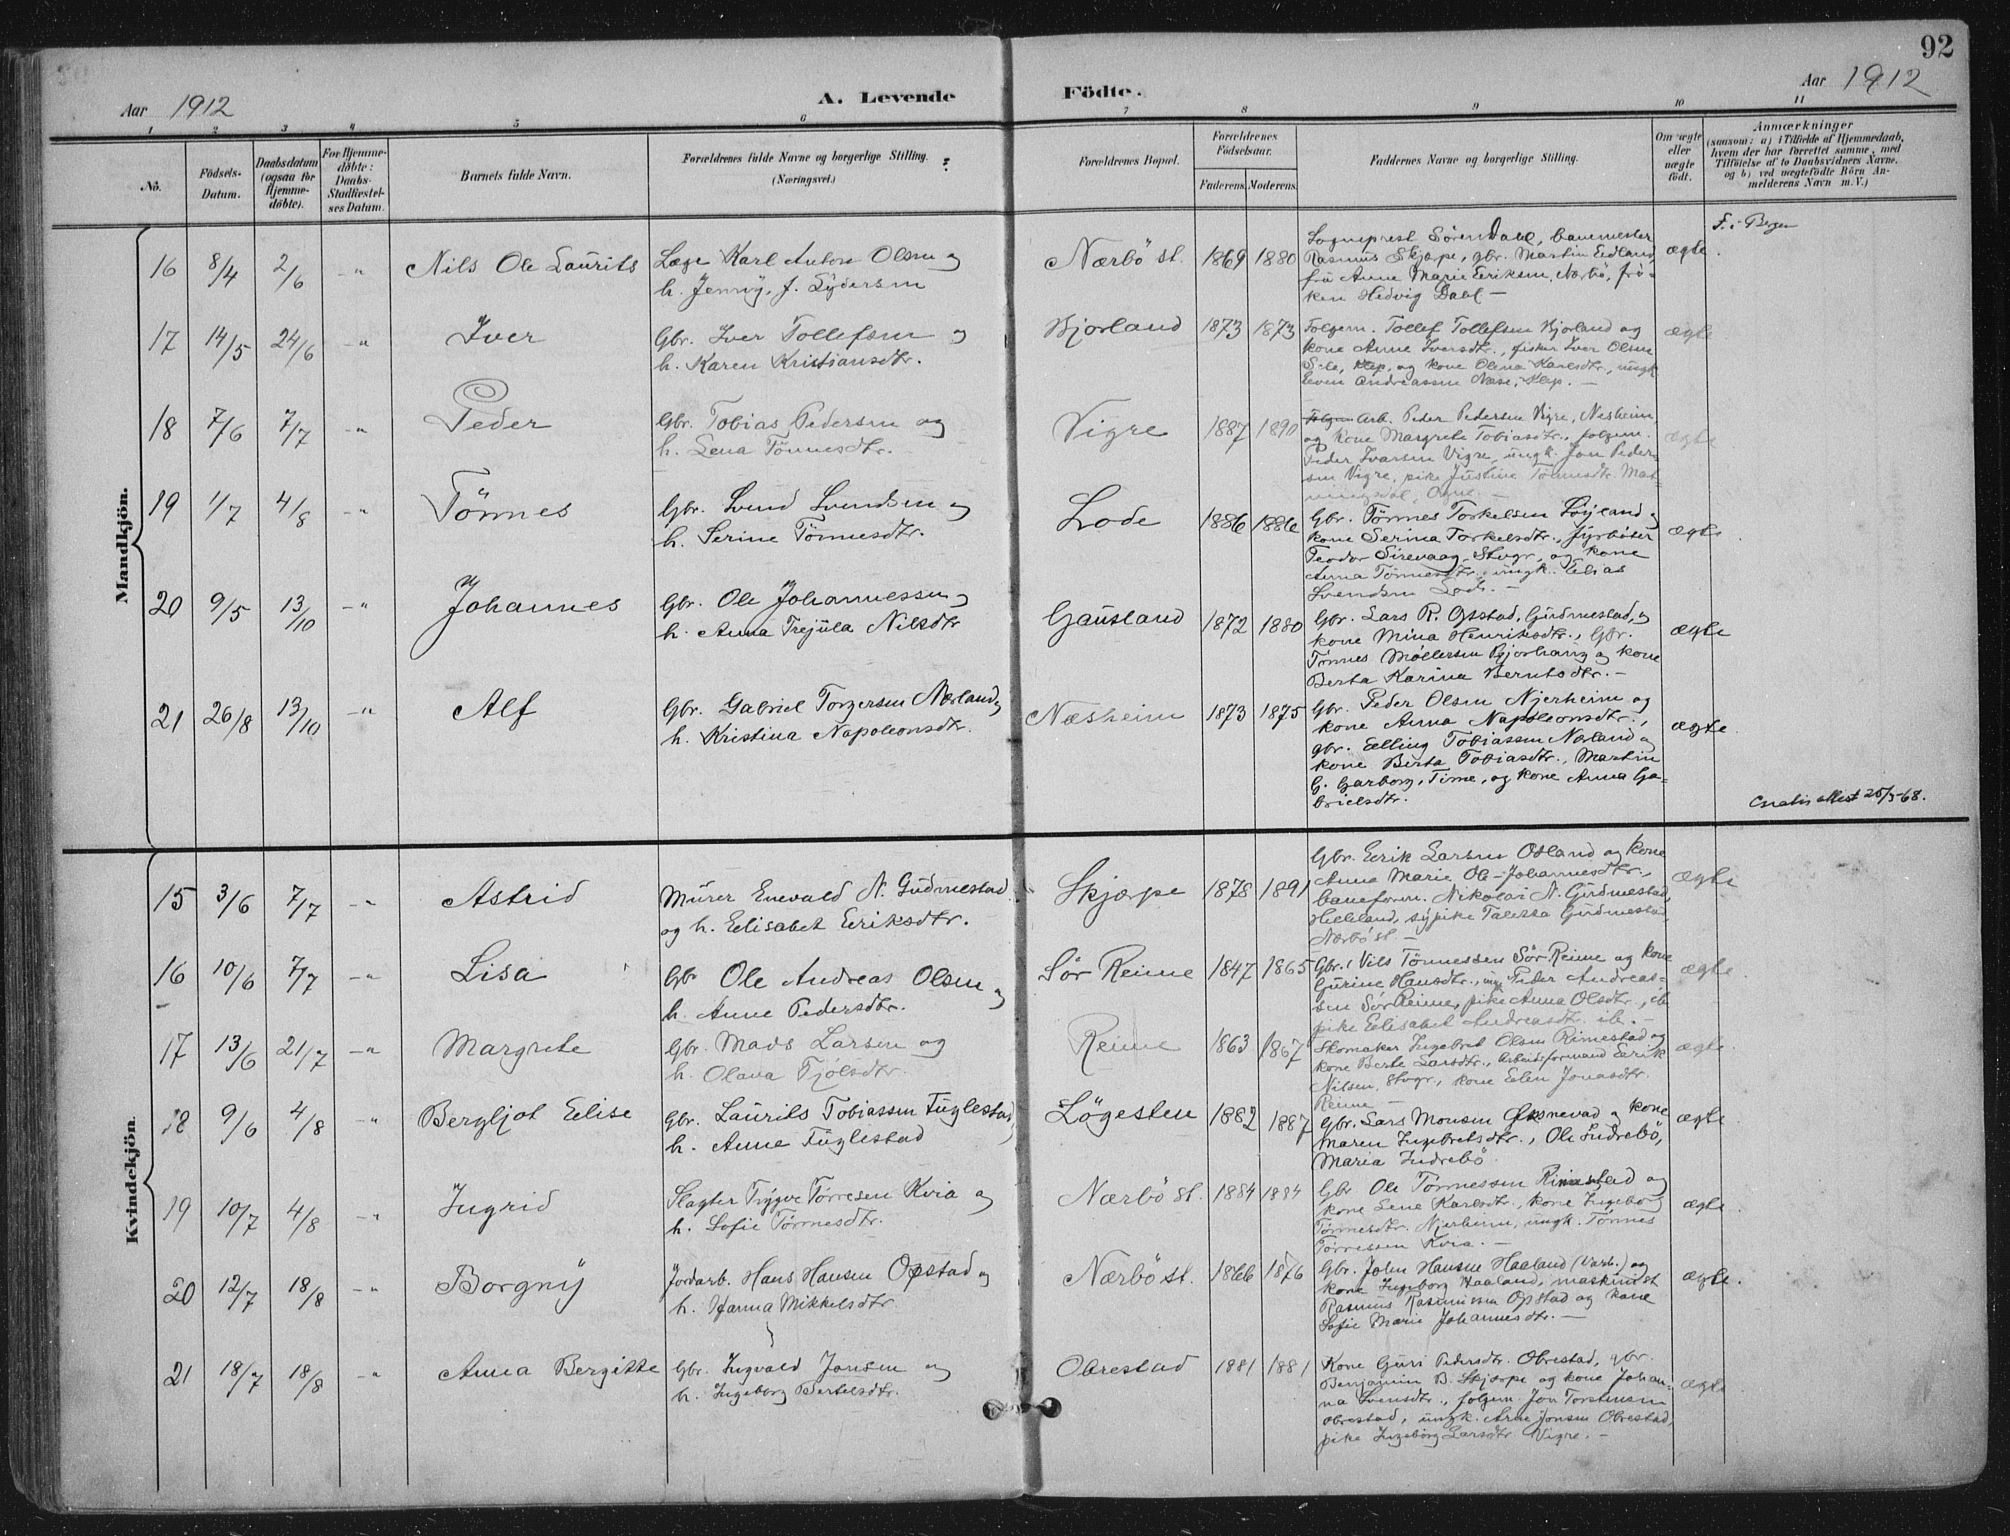 92
Aar 1912
A. Levende
Födte.
Aar 1912
1 2 3 4 5 6 7 8 9 10 11
No.
Födsels-
Datum.
Daabsdatum
(ogsaa for
Hjemme-
döbte).
For Hjemme-
döbte:
Daabs-
Stadfæstel-
ses Datum.
Barnets fulde Navn.
Forældrenes fulde Navne og borgerlige Stilling.
(Næringsvei.)
Forældrenes Bopæl.
Forældrenes
Födselsaar.
Faderens. Moderens.
Faddernes Navne og borgerlige Stilling.
Om ægte
eller
uægte
födt.
Anmærkninger
(saasom: a) i Tilfælde af Hjemmedaab,
hvem der har forrettet samme, med
Tilföielse af to Daabsvidners Navne.
og b) ved uægtefödte Börn An-
melderens Navn m. V.)
Mandkjön.
16 8/4 2/6 -"- Nils Ole Laurits
Læge Karl Anton Olsen og
h. Jenny, f. Sydersen
Nærbö st. 1869 1880
Sogneprest Sören Dahl, banemester
Rasmus Skjæpe, gbr. Martin Eidland
frü Anne Marie Eriksen, Nærbö, frö-
ken Hedvig Dahl -
ægte
F. i Bergen
17 14/5 24/6 -"- Iver
Gbr. Iver Tollefsen og
h. Karen Kristiansdtr.
Hjorland 1873 1873
Folgem. Tollef Tollefsen Hjorland og
kone Anne Iversdtr., fisker Iver Olsen
Sele, Klep, og kone Olena Karlsdtr., ungk
Even Andreassen Næse, Klep. -
ægte
18 7/6 7/7 -"- Peder
Gbr. Tobias Pedersen og
h. Lena Tönnesdtr.
Vigre 1887 1890
Arb. Peder Pedersen Vigre, Nesheim,
og kone Margrete Tobiasdtr., folgem.
Peder Ivarsen Vigre, ungk. Jon Peder-
sen Vigre, pike Justine Tönnesdtr.
Ogne. -
ægte
19 1/7 4/8 -"- Tönnes
Gbr. Svend Svendsen og
h. Serine Tönnesdtr.
Lode 1886 1886
Gbr. Tönnes Torkelsen Löyland og
kone Serina Torkelsdtr., fyrböter
Teodor Sirevaag, Stvgr, og kone
Anna Tönnesdtr. ungk. Elias
Svendsen Lode. -
ægte
20 9/5 13/10 -"- Johannes
Gbr. Ole Johannessen og
h. Anna Trejüla Nilsdtr
Gausland 1872 1880
Gbr. Lars R. Opstad, Gudmestad, og
kone Mina Henriksdtr., Gbr.
Tönnes Möllersen Kjorhaug og kone
Berta Karina Berntsdtr. -
ægte
21 26/8 13/10 -"- Alf
Gbr. Gabriel Torgersen Nærland og
h. Kristina Napoleonsdtr.
Næsheim 1873 1875
Gbr. Peder Olsen Njerheim og
kone Anna Napoleonsdtr.,
gbr. Elling Tobiassen Nærland og
kone Berta Tobiasdtr., Martin
G. Garborg, Time, og kone Anna Ga-
brielsdtr.
ægte
attest 25/5-68.
Kvindekjön.
15 3/6 7/7 -"- Astrid
Mürer Enevald N. Gudmestad
og h. Elisabet Eriksdtr.
Skjæpe 1878 1891
Gbr. Erik Larsen Osland og kone
Anne Marie Ole-Johannesdtr.,
baneform. Nikolai N. Gudmestad,
Helleland, sypike Talessa Gudmestad
Nærbö st. -
ægte
16 10/6 7/7 -"- Lisa
Gbr Ole Andreas Olsen og
h. Anne Pedersdtr.
Sör Reime 1847 1865
Gbr. Nils Tönnessen Sör Reime og kone
Gurine Hansdtr., ung Peder Andreas-
sen Sör Reime, pike Anna Olsdtr., ib
pike Elisabet Andreasdtr. ib. -
ægte
17 13/6 21/7 -"- Margrete
Gbr. Mads Larsen og
h. Olava Tjölsdtr.
Reime 1863 1867
Skomaker Ingebret Olsen Rimestad og
kone Berte Larsdtr., Arbeidsformand Eerik
Nilsen, Stvgr., kone Elen Jonasdtr.
Reime -
ægte
18 9/6 4/8 -"- Bergljot Elise
Gbr. Laurits Tobiassen Fuglestad
h. Anne Fuglestad
Lögesten 1882 1887
Gbr. Lars Monsen Oksnevad og kone
Maren Ingebretsdtr., Ole Indrebö,
Maria Indrebö.
ægte
19 10/7 4/8 -"- Ingrid
Slagter Trygve Törresen Kvia og
h. Sofie Tönnesdtr.
Nærbö st. 1884 1884
Gbr Ole Tönnessen Rimestad og
kone Lene Karlsdtr, kone Ingeborg
Tönnesdtr. Njerheim, ungk. Tönnes
Törressen Kvia. -
ægte
20 12/7 18/8 -"- Borgny
Jordarb. Hans Hansen Opstad og
h. Hanna Mikkelsdtr.
Nærbö st. 1866 1876
Gbr. John Hansen Haaland (Varh.) og
kone Ingeborg Haaland, maskinist
Rasmus Rasmussen Opstad og kone
Sofie Marie Johannesdtr. -
ægte.
21 18/7 18/8 -"- Anna Bergitte
Gbr. Ingvald Jonsen og
h. Ingeborg Bertelsdtr.
Obrestad 1881 1881
Kone Guri Pedersdtr. Obrestad, gbr.
Benjamin B. Skjæpe og kone Johan-
na Svensdtr., folgem Jon Torstensen
Obrestad, ungk. Arne Jonsen Obrestad,
pike Ingeborg Larsdtr Vigre. -
ægte